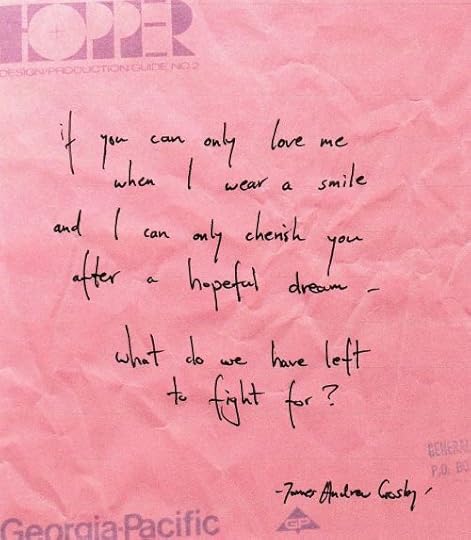 HOPPER
DESIGN/PRODUCTION GUIDE NO.2
if you can only love me
when I wear a smile
and I can only cherish you
after a hopeful dream –
what do we have left
to fight for?
GENERAL
P.O. BO
- Andrew Crosby -
Georgia-Pacific
GP